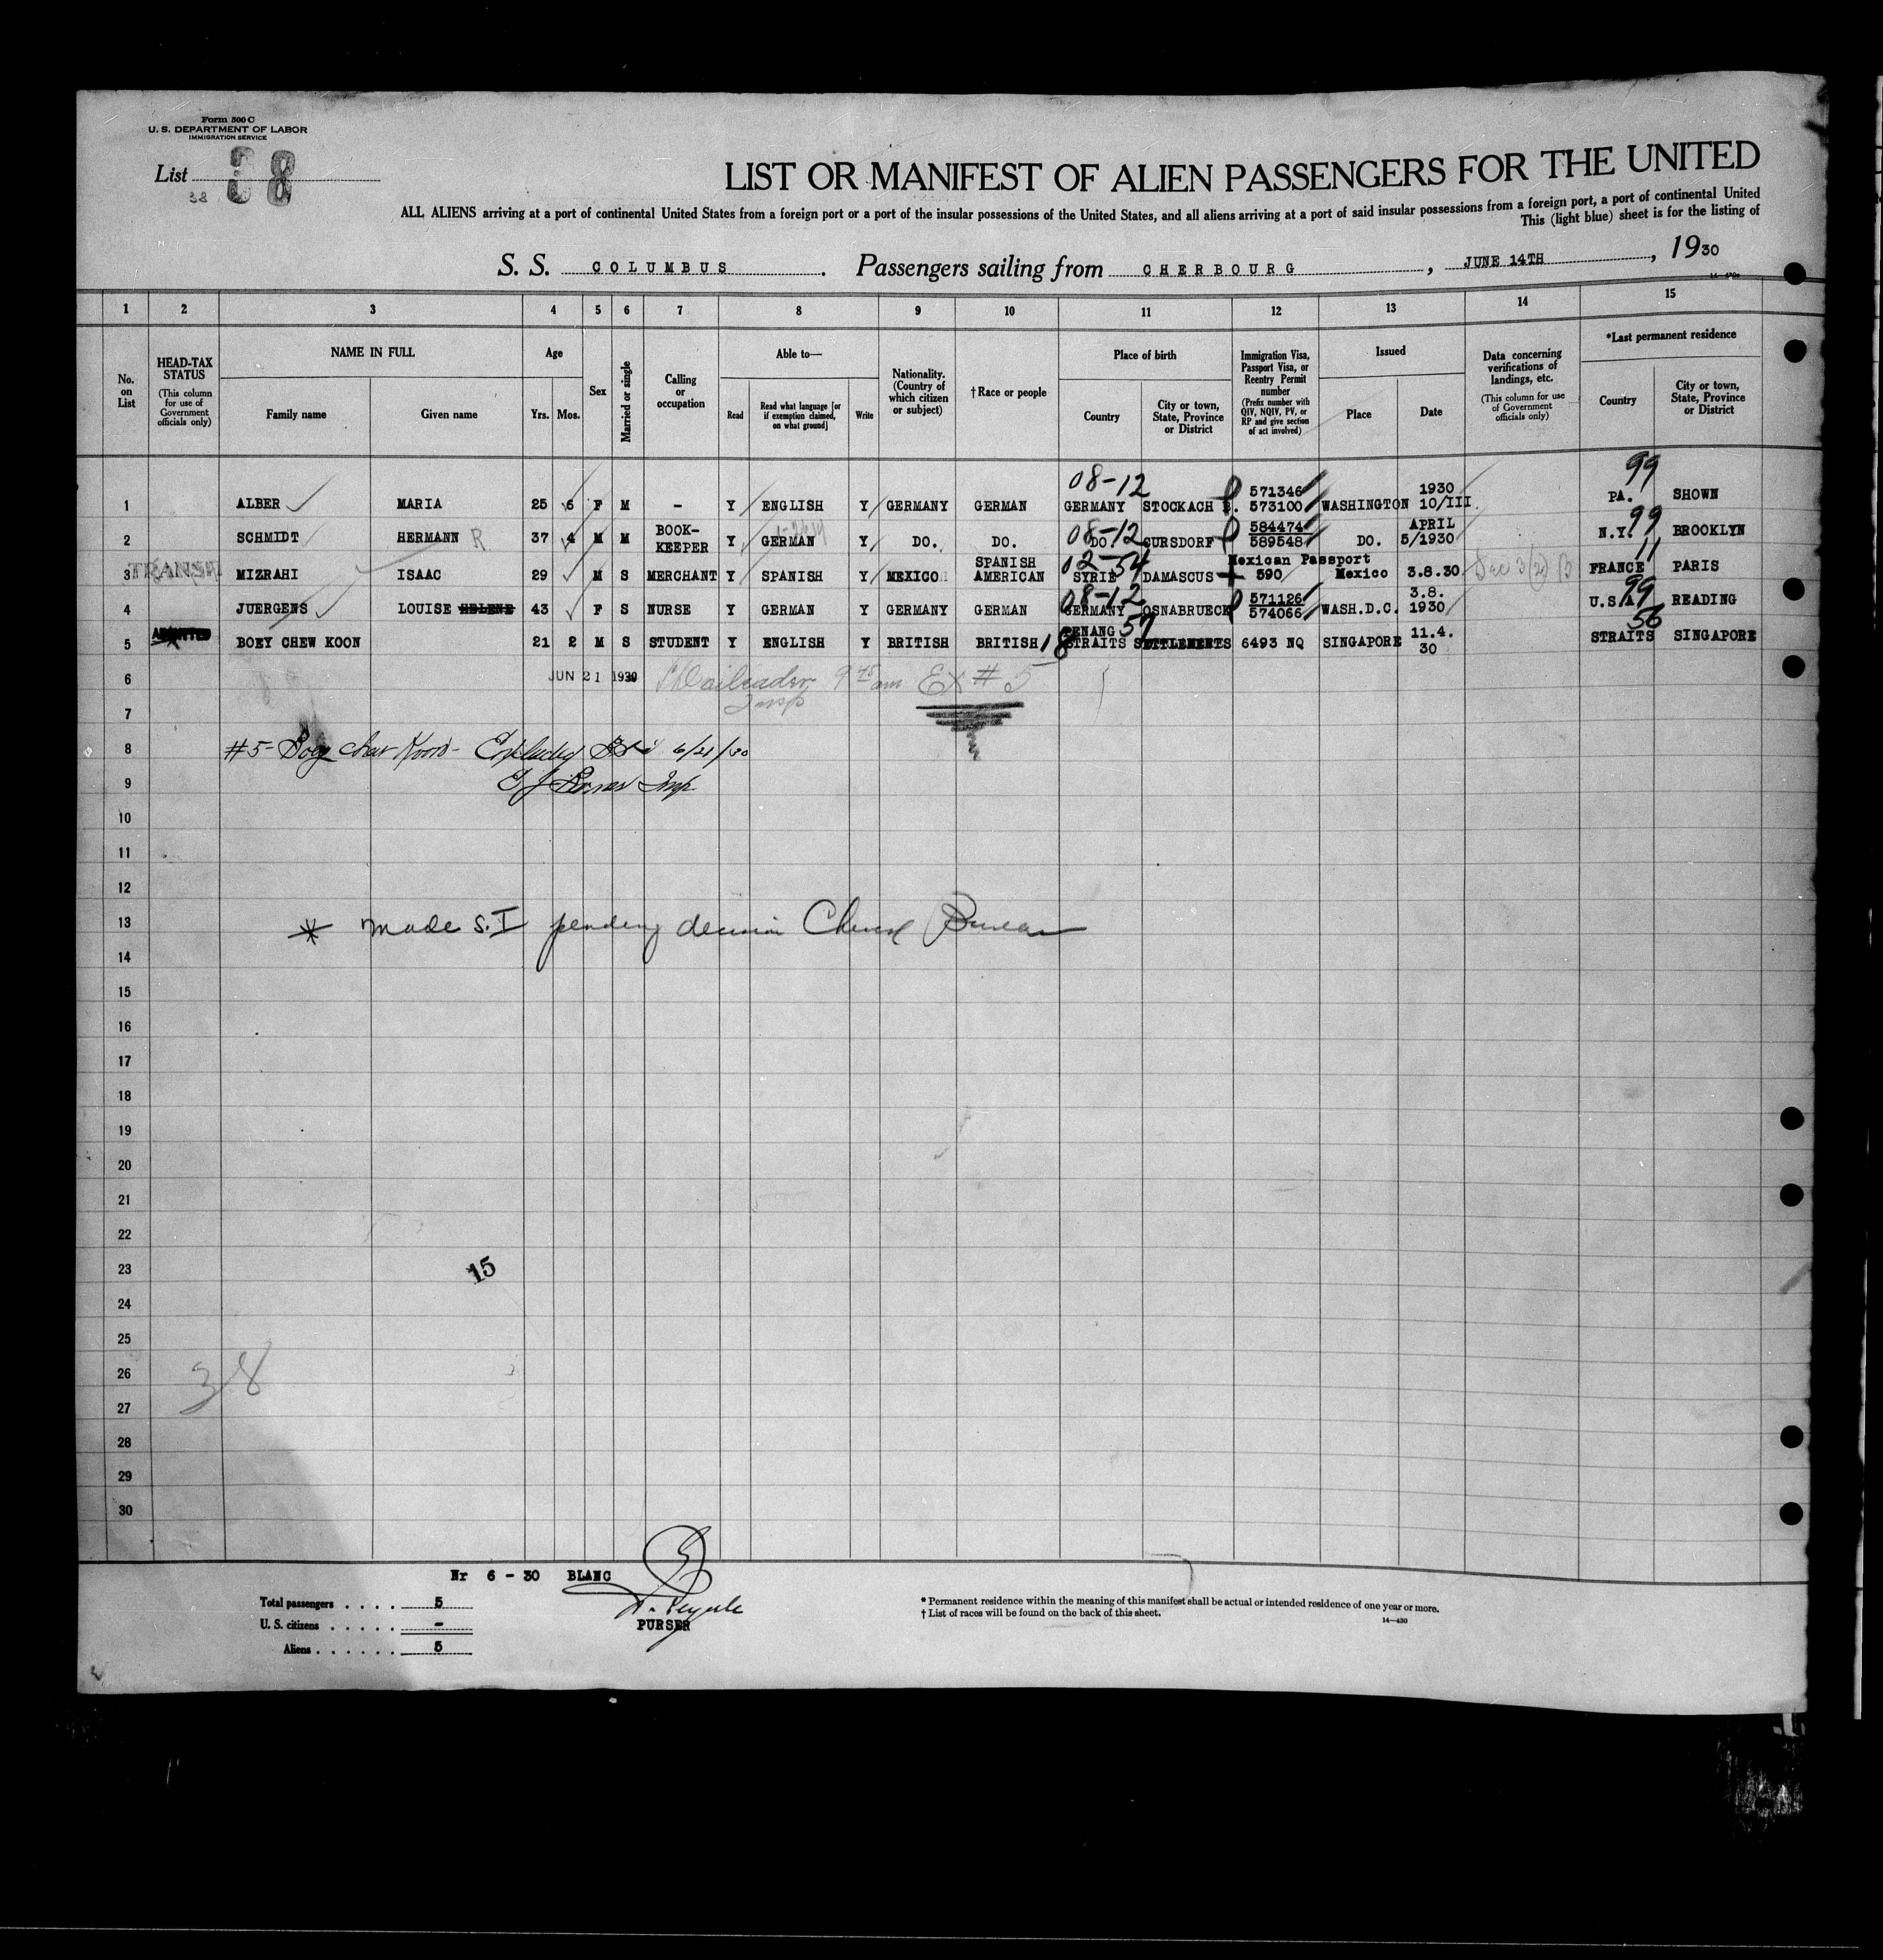 Form 500 C
U. S. DEPARTMENT OF LABOR
IMMIGRATION SERVICE
List 38
38
LIST OR MANIFEST OF ALIEN PASSENGERS FOR THE UNITED
ALL ALIENS arriving at a port of continental United States from a foreign port or a port of the insular possessions of the United States, and all aliens arriving at a port of said insular possessions from a foreign port, a port of continental United
This (light blue) sheet is for the listing of
S. S. COLUMBUS. Passengers sailing from CHERBOURG, JUNE 14TH, 1930
1 2 3 4 5 6 7 8 9 10 11 12 13 14 15
No. on List
HEAD-TAX STATUS
(This column for use of Government officials only)
NAME IN FULL
Family name Given name
Age
Yrs. Mos.
Sex
Married or single
Calling or occupation
Able to—
Read
Read what language [or if exemption claimed, on what ground]
Write
Nationality. (Country of which citizen or subject)
† Race or people
Place of birth
Country
City or town, State, Province or District
Immigration Visa, Passport Visa, or Reentry Permit number
(Prefix number with QIV, NQIV, PV, or RP and give section of act involved)
Issued
Place Date
Data concerning verifications of landings, etc.
(This column for use of Government officials only)
*Last permanent residence
Country
City or town, State, Province or District
08-12 571346 1930 99
1 ALBER MARIA 25 6 F M - Y ENGLISH Y GERMANY GERMAN GERMANY STOCKACH B. 573100 WASHINGTON 10/III PA. SHOWN
08-12 584474 APRIL 99
2 SCHMIDT HERMANN R 37 4 M M BOOK-KEEPER Y GERMAN Y DO. DO. DO. CURSDORF 589548 DO. 5/1930 N.Y. BROOKLYN
TRANSIT 02-54 Mexican Passport 11
3 MIZRAHI ISAAC 29 M S MERCHANT Y SPANISH Y MEXICO SPANISH AMERICAN SYRIE DAMASCUS 590 Mexico 3.8.30 Sec 3(2) FRANCE PARIS
08-12 571126 3.8. 99
4 JUERGENS LOUISE HELENE 43 F S NURSE Y GERMAN Y GERMANY GERMAN GERMANY OSNABRUECK 574066 WASH.D.C. 1930 U.S.A. READING
ADMITTED PENANG 57 36
5 BOEY CHEW KOON 21 2 M S STUDENT Y ENGLISH Y BRITISH BRITISH 18 STRAITS SETTLEMENTS 6493 NQ SINGAPORE 11.4.30 STRAITS SINGAPORE
6 JUN 21 1930 9 15 am EX # 5
Insp
7
8 #5 - Boey Chew Koon - Excluded BSI 6/21/30
9 Insp.
10
11
12
13 * Made S.I pending decision Chinese Bureau
14
15
16
17
18
19
20
21
22
23 15
24
25
26 38
27
28
29
30
Nr 6 - 30 BLANC
Total passengers . . . . 5
U. S. citizens . . . . . -
Aliens . . . . . . 5
PURSER
* Permanent residence within the meaning of this manifest shall be actual or intended residence of one year or more.
† List of races will be found on the back of this sheet.
14—430